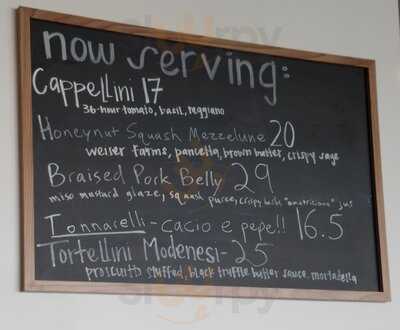 now serving:
Cappellini 17
36-hour tomato, basil, reggiano
Honeynut Squash Mezzelune 20
weiser farms, pancetta, brown butter, crispy sage
Braised Pork Belly 29
miso mustard glaze, squash puree, crispy "amatriciana" jus
Tonnarelli - cacio e pepe!! 16.5
Tortellini Modenesi - 25
prosciutto stuffed, black truffle butter sauce, mortadella
sluurpy
sluurpy